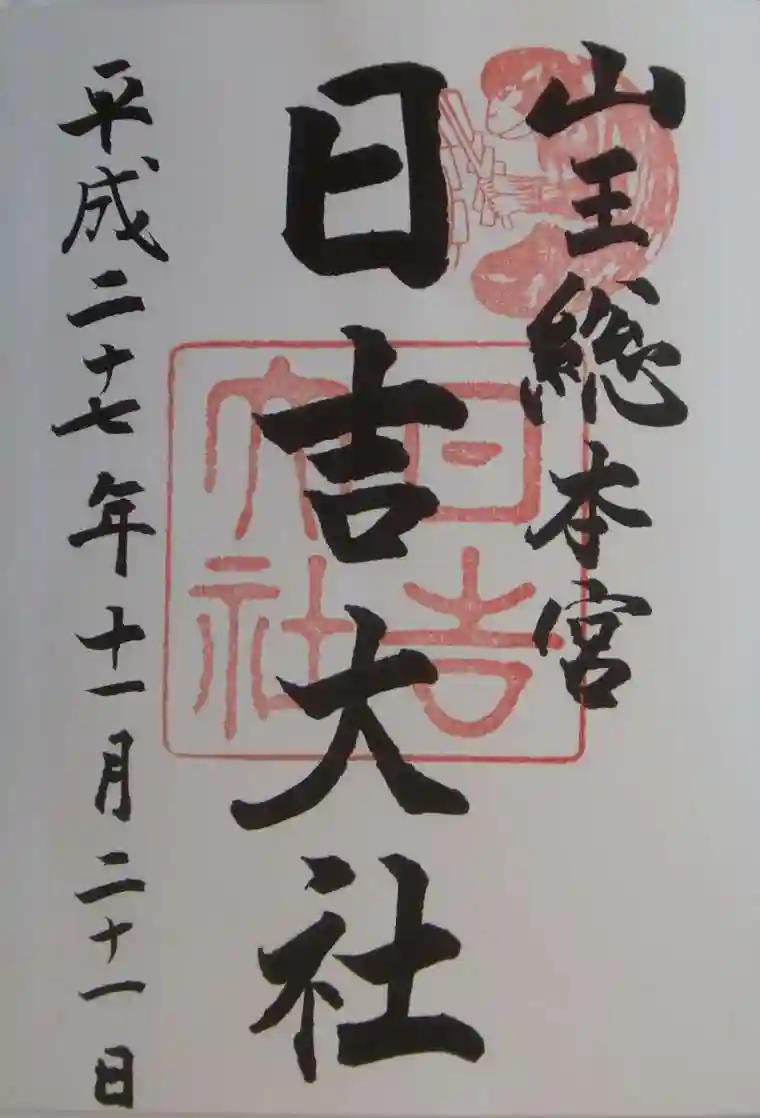 山王総本宮
日吉大社
日吉大社
平成二十七年十一月二十一日